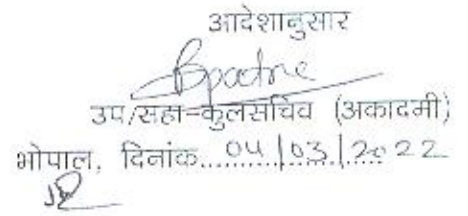 आदेशानुसार
उप/सहा-कुलसचिव (अकादमी)
भोपाल, दिनांक....04/03/2022